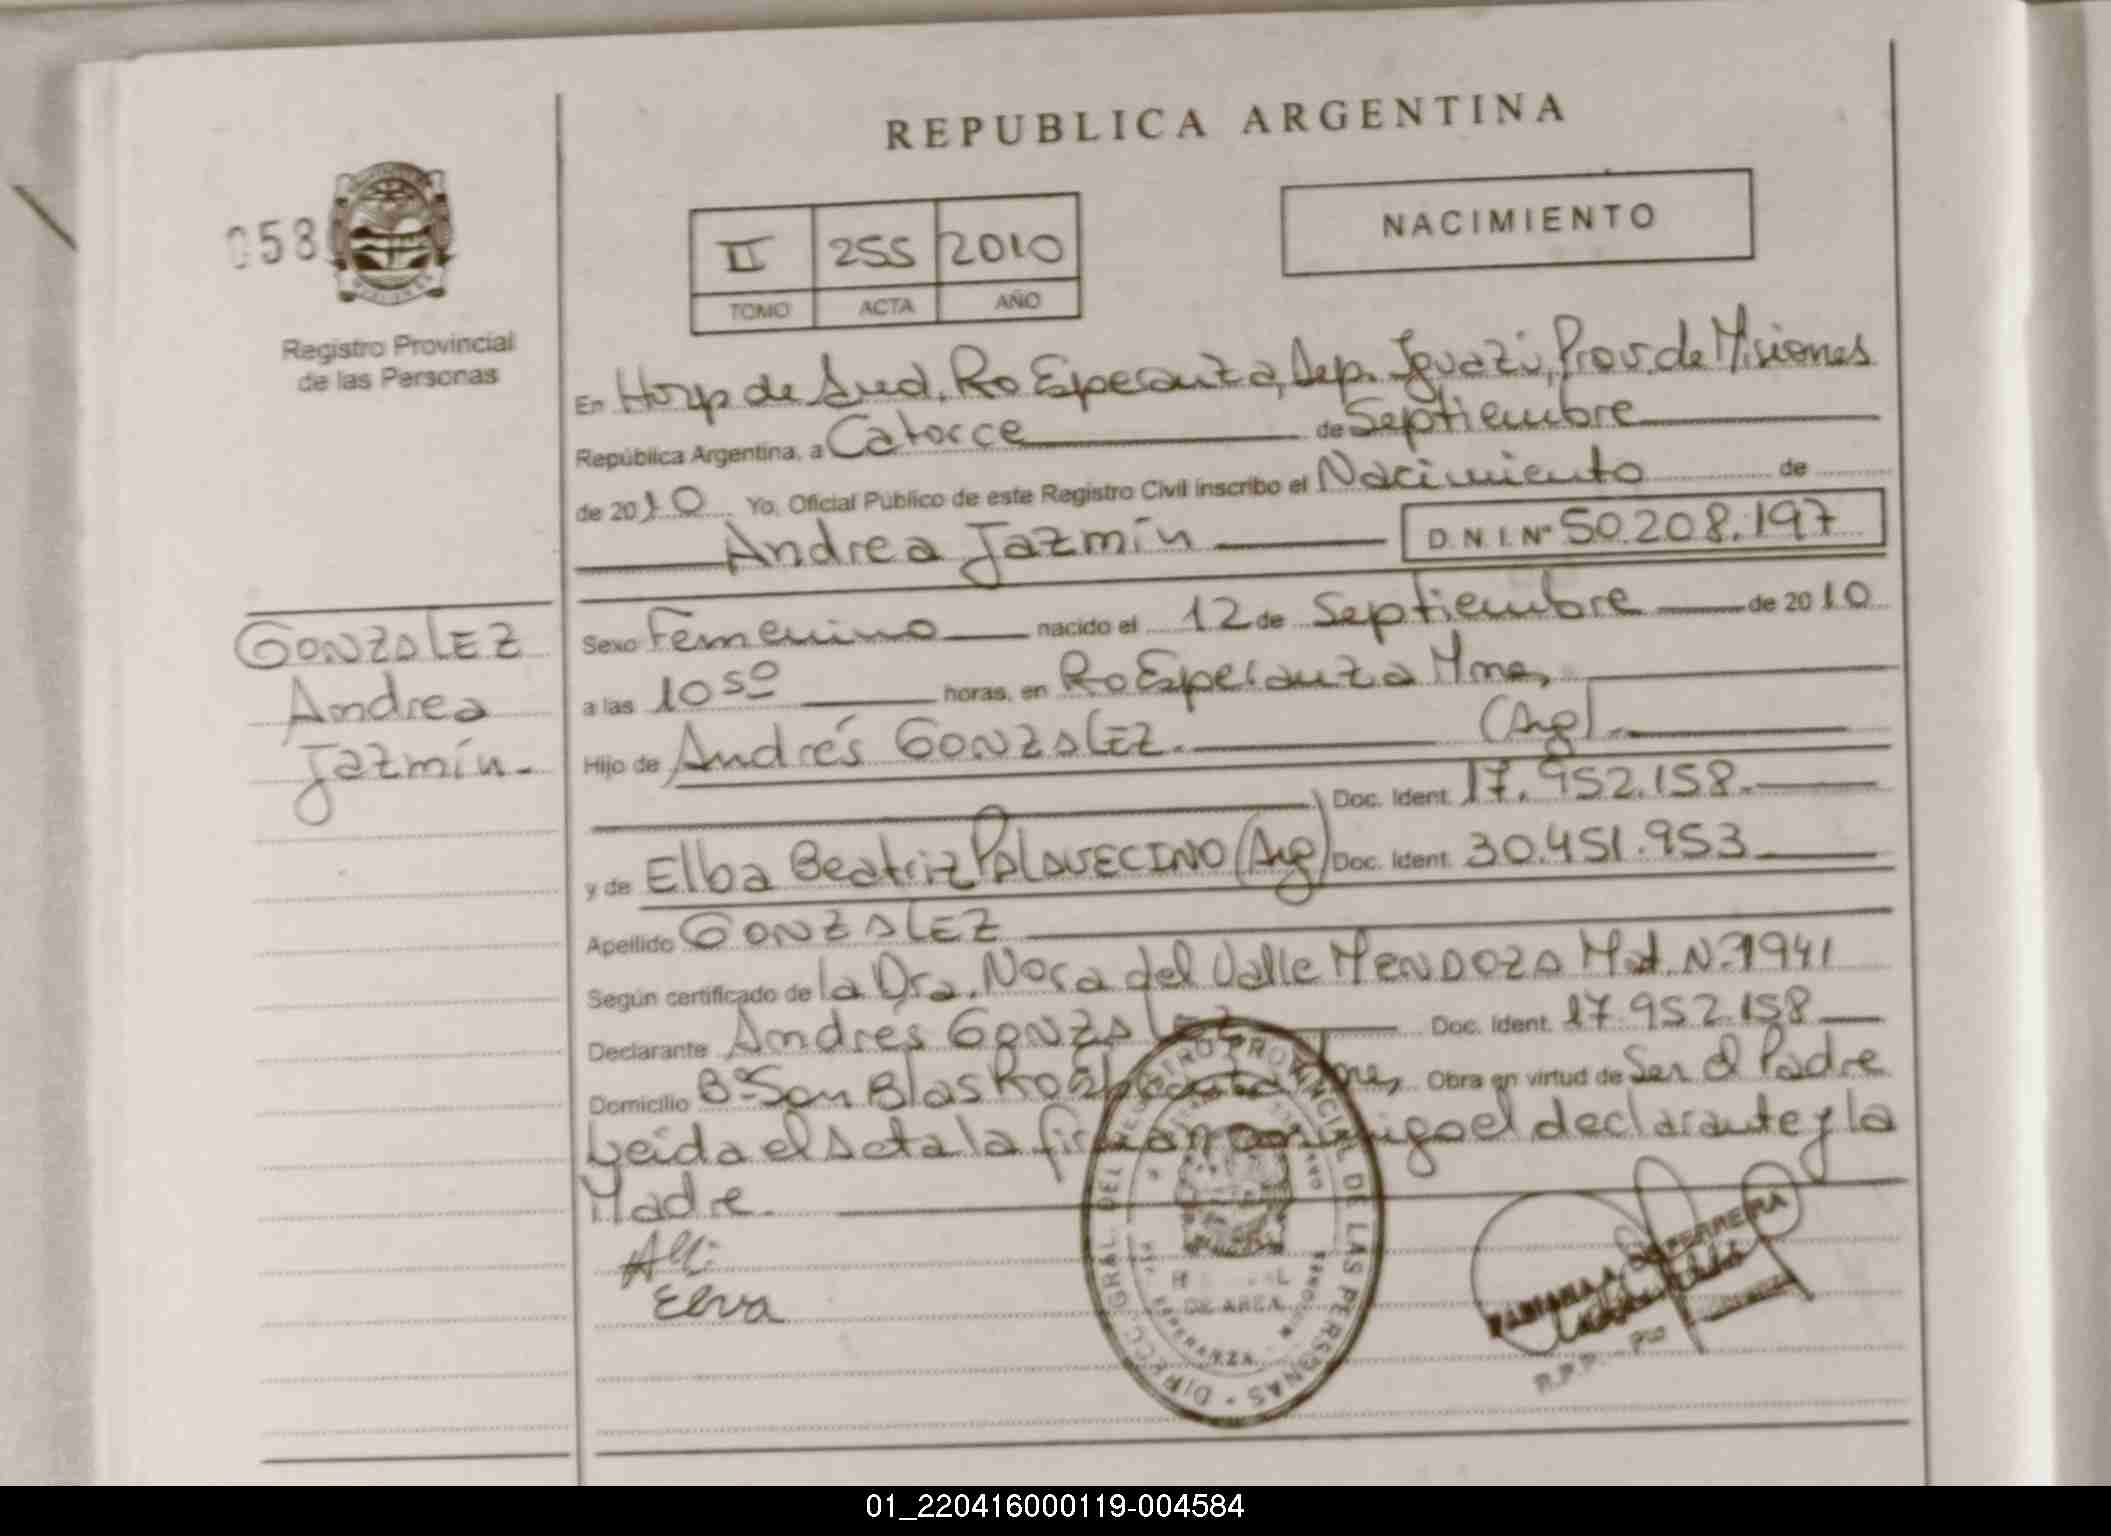 REPUBLICA ARGENTINA
058
II 255 2010
TOMO ACTA AÑO
NACIMIENTO
Registro Provincial
de las Personas
En Hosp de Area, Pto Esperanza, Dep. Iguazú, Prov. de Misiones
República Argentina, a Catorce de Septiembre
de 2010 Yo, Oficial Público de este Registro Civil inscribo el Nacimiento de
Andrea Jazmín D.N.I. Nº 50.208.197
GONZALEZ
Andrea
Jazmín.-
Sexo Femenino nacido el 12 de Septiembre de 2010
a las 10 50 horas, en Pto Esperanza Mnes,
Hijo de Andrés GONZALEZ. (Arg).
Doc. Ident. 17.952.158.
y de Elba Beatriz PALAVECINO (Arg) Doc. Ident. 30.451.953
Apellido GONZALEZ
Según certificado de la Dra. Nora del Valle MENDOZA Mat. Nº 1941
Declarante Andrés GONZALEZ Doc. Ident. 17.952.158
Domicilio Bº San Blas Pto Esperanza Mnes, Obra en virtud de Ser el Padre
Leida el acta la firman conmigo el declarante y la
Madre.
Elva
DIRECC. GRAL. DEL REGISTRO PROVINCIAL DE LAS PERSONAS
DE AREA
ESPERANZA
MISIONES
FERREIRA
R.P.P.
01_220416000119-004584